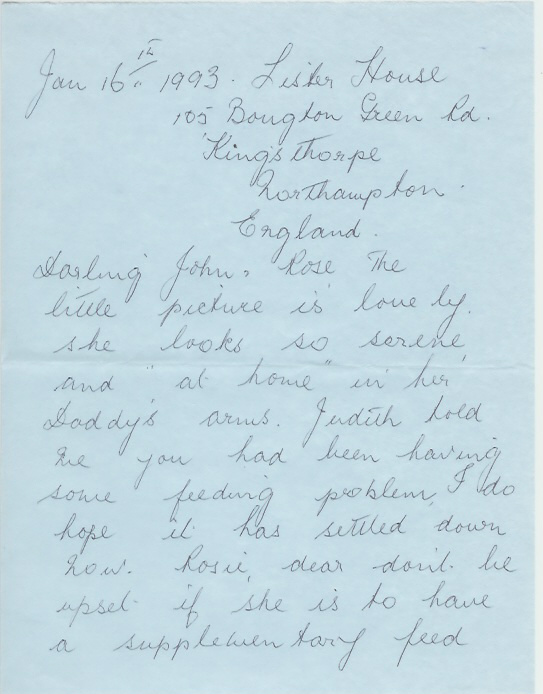 Jan 16th 1993. Lister House
105 Boughton Green Rd.
'Kingsthorpe
Northampton.
England.
Darling John & Rose The
little picture is lovely.
she looks so serene
and "at home" in her
Daddy's arms. Judith told
me you had been having
some feeding problem, I do
hope it has settled down
now. Rosie, dear don't be
upset if she is to have
a supplementary feed